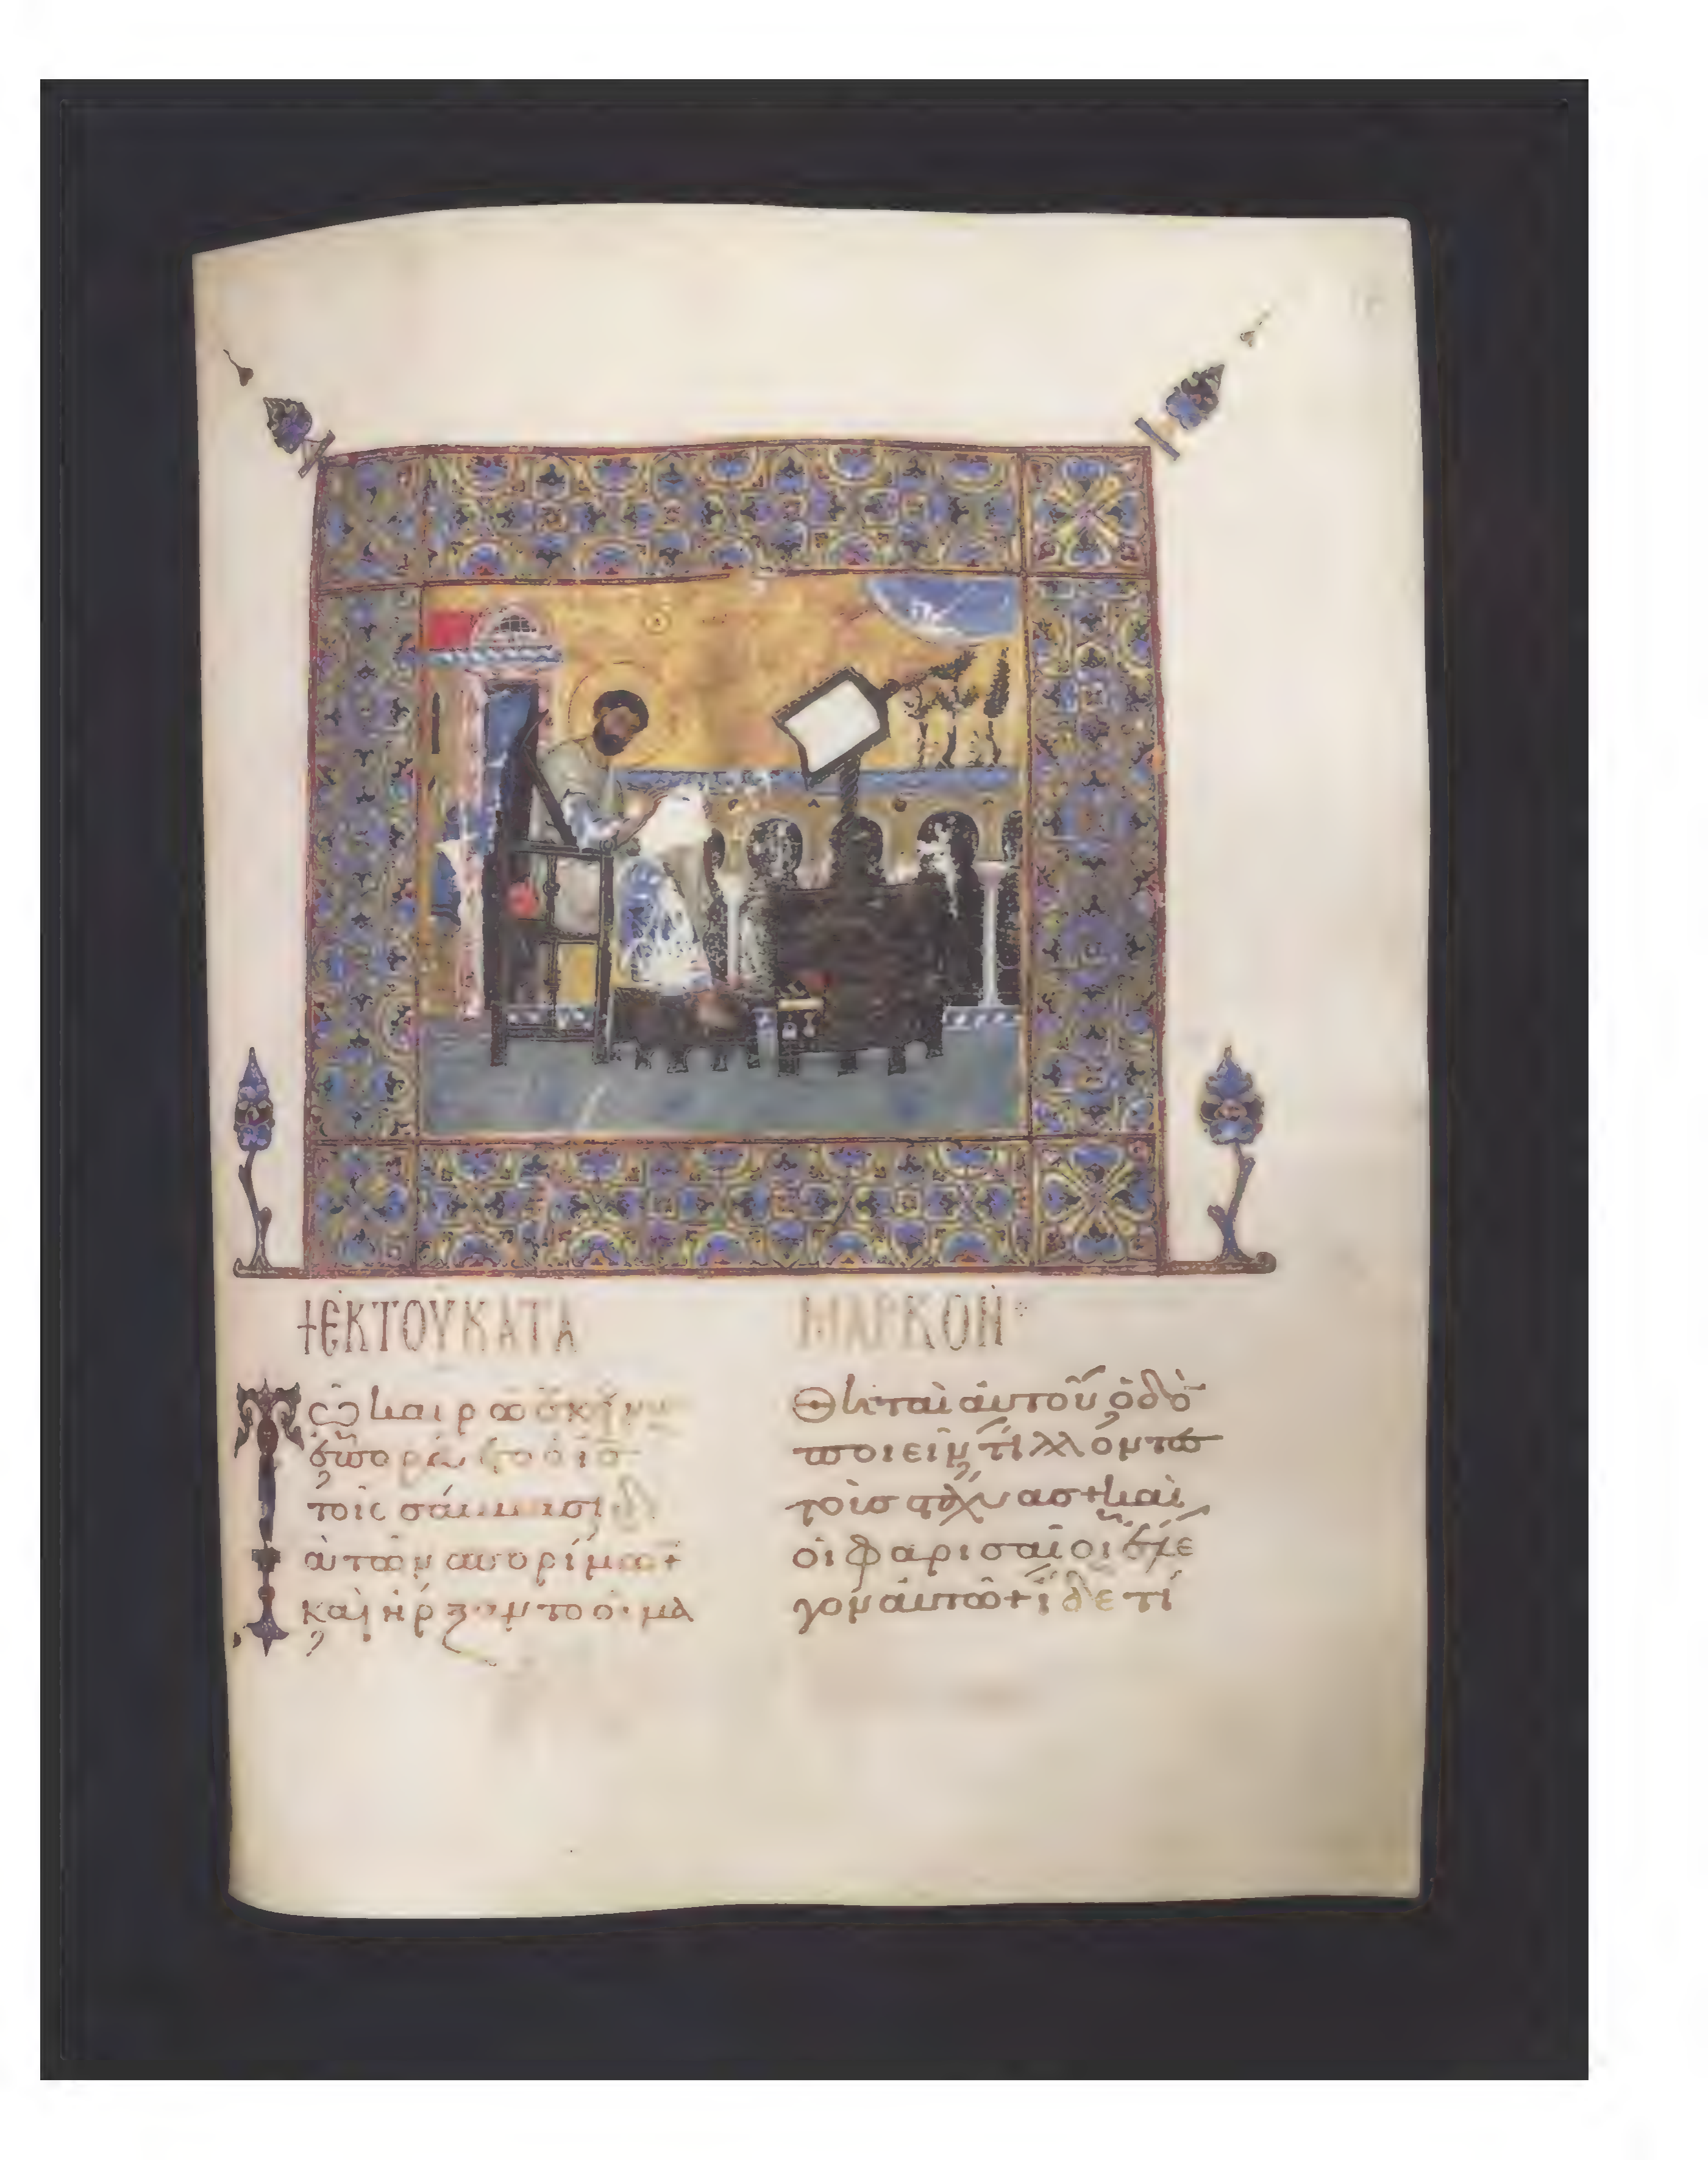 + ἘΚ ΤΟΥ ΚΑΤΑ ΜΑΡΚΟΝ
Τῶ καιρῶ ἐκείνω
ἐπορεύετο ὁ ἰς
τοῖς σάββασι δ
ὰ τῶν σπορίμων+
καὶ ἤρξαντο οἱ μα
θηταὶ ἀυτοῦ ὁδὸ
ποιεῖν τίλλοντες
τοὺσ στάχυασ+ καὶ
οἱ φαρισαῖοι ἔλε
γον ἀυτῶ+ ἴδε τί